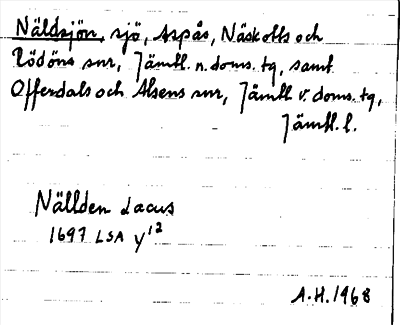 Näldsjön, sjö, Aspås, Näskotts och
Rödöns snr, Jämtl. n. doms. tg, samt
Offerdals och Alsens snr, Jämtl. v. doms. tg,
Jämtl. l.
Nällden Lacus
1697 LSA Y¹²
A.H. 1968